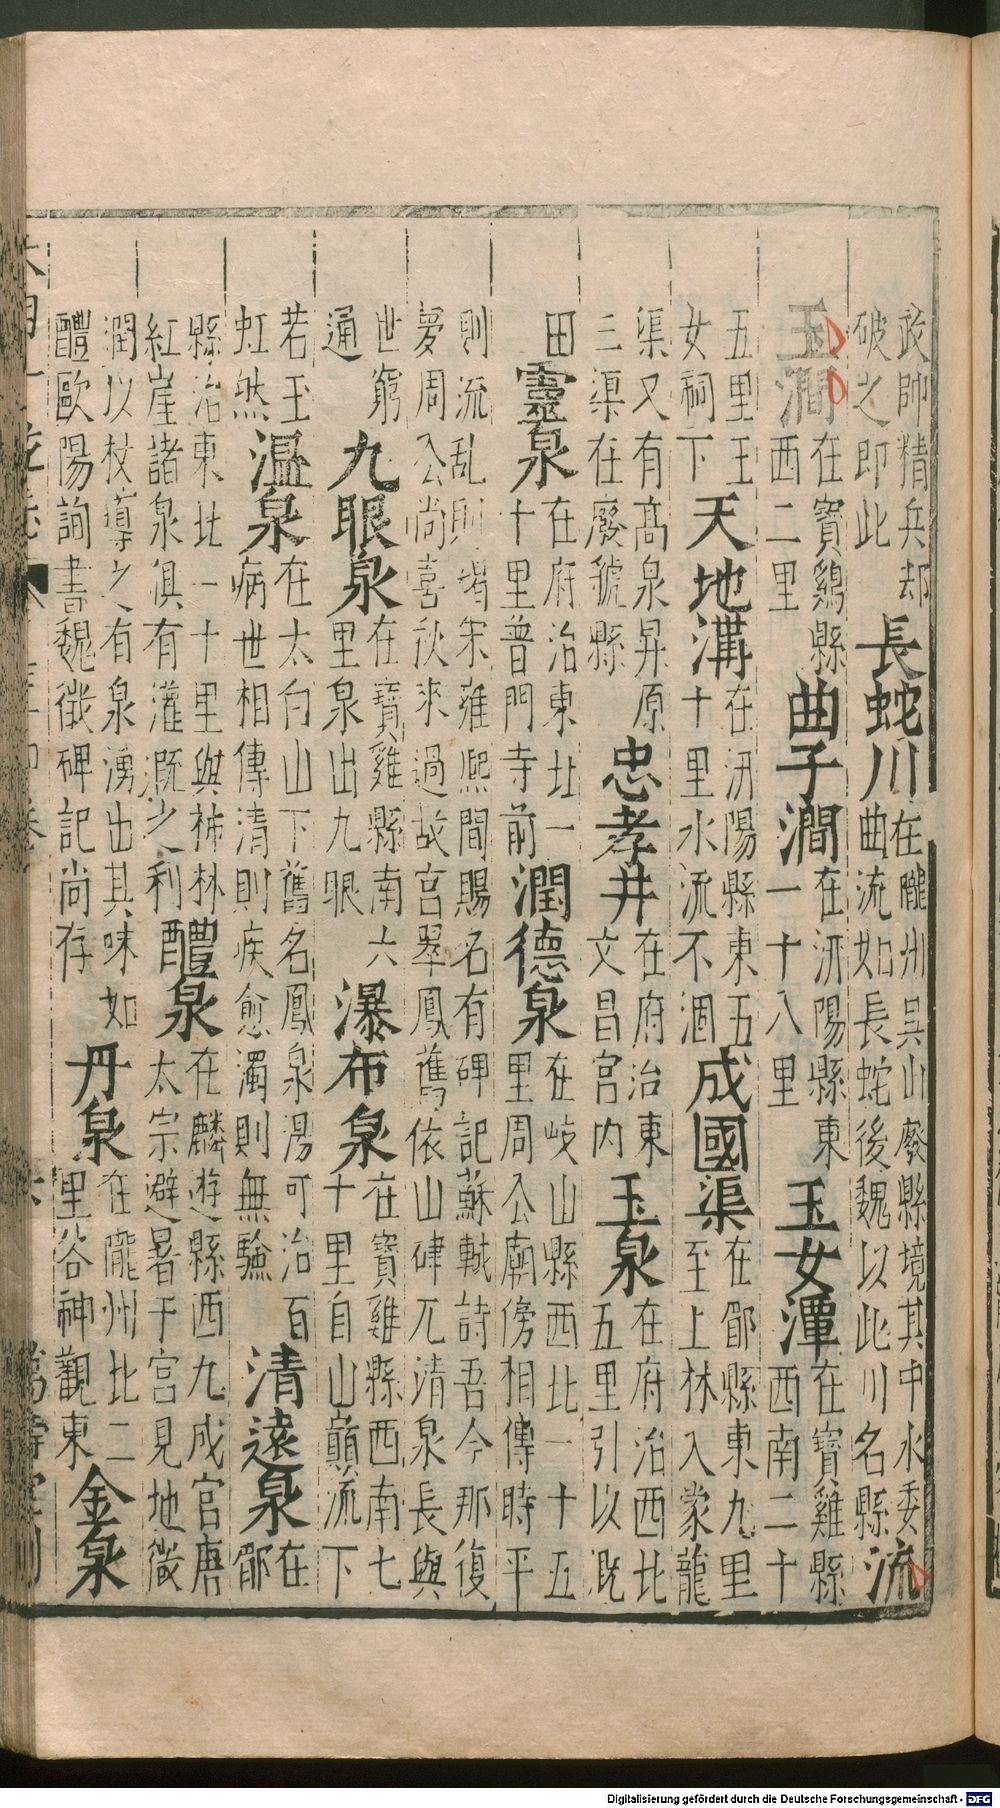 政帥精兵却
破之即此
長蛇川
在隴州吳山廢縣境其中水委
曲流如長蛇後魏以此川名縣
流
玉澗
在寶鷄縣
西二里
曲子澗
在汧陽縣東
一十八里
玉女潭
在寶雞縣
西南二十
五里玉
女祠下
天地溝
在汧陽縣東五
十里水流不涸
成國渠
在郿縣東九里
至上林入蒙龍
渠又有高泉昇原
三渠在廢虢縣
忠孝井
在府治東
文昌宮內
玉泉
在府治西北
五里引以溉
田
靈泉
在府治東北一
十里普門寺前
潤德泉
在岐山縣西北一十五
里周公廟傍相傳時平
則流乱則竭宋雍熙間賜名有碑記蘇軾詩吾今那復
夢周公尚喜秋來過故宮翠鳳舊依山硉兀清泉長與
世窮
通
九眼泉
在寶雞縣南六
里泉出九眼
瀑布泉
在寶雞縣西南七
十里自山巔流下
若玉
虹然
溫泉
在太白山下舊名鳳泉湯可治百
病世相傳清則疾愈濁則無驗
清遠泉
在
郿
縣治東北一十里與柿林
紅崖諸泉俱有灌溉之利
醴泉
在麟遊縣西九成宮唐
太宗避暑于宮見地微
潤以杖導之有泉湧出其味如
醴歐陽詢書魏徵碑記尚存
丹泉
在隴州北二
里谷神觀東
金泉
Digitalisierung gefördert durch die Deutsche Forschungsgemeinschaft - DFG